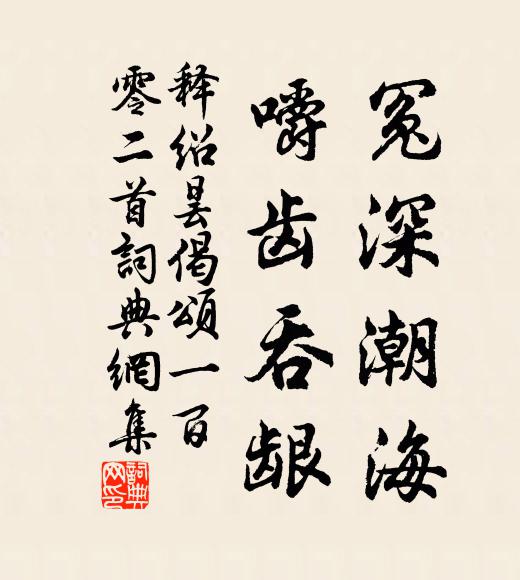 冤深潮海
嚼齿吞龈
释绍昙偈颂一百
零二首詞典網集
詞典网印